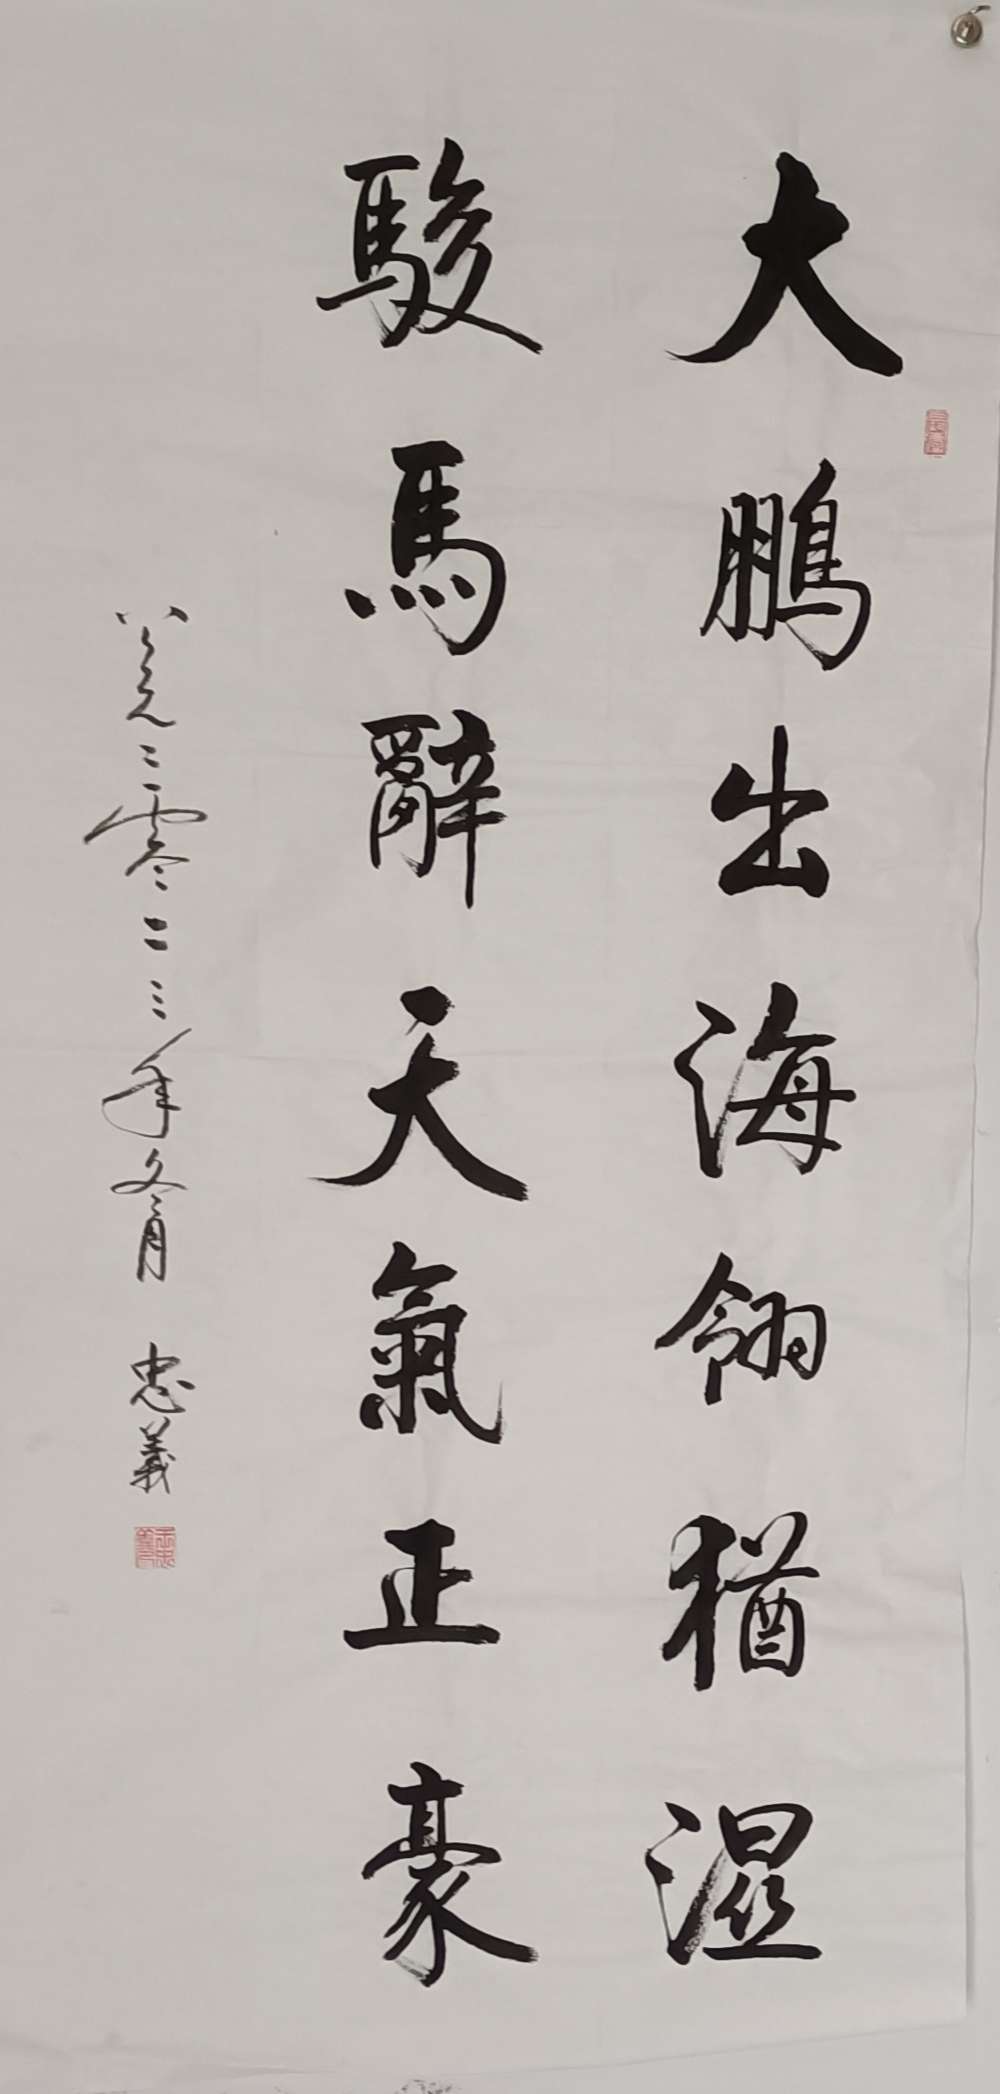 大鵬出海翎猶濕
駿馬辭天氣正豪
公元二零二三年冬月 忠義